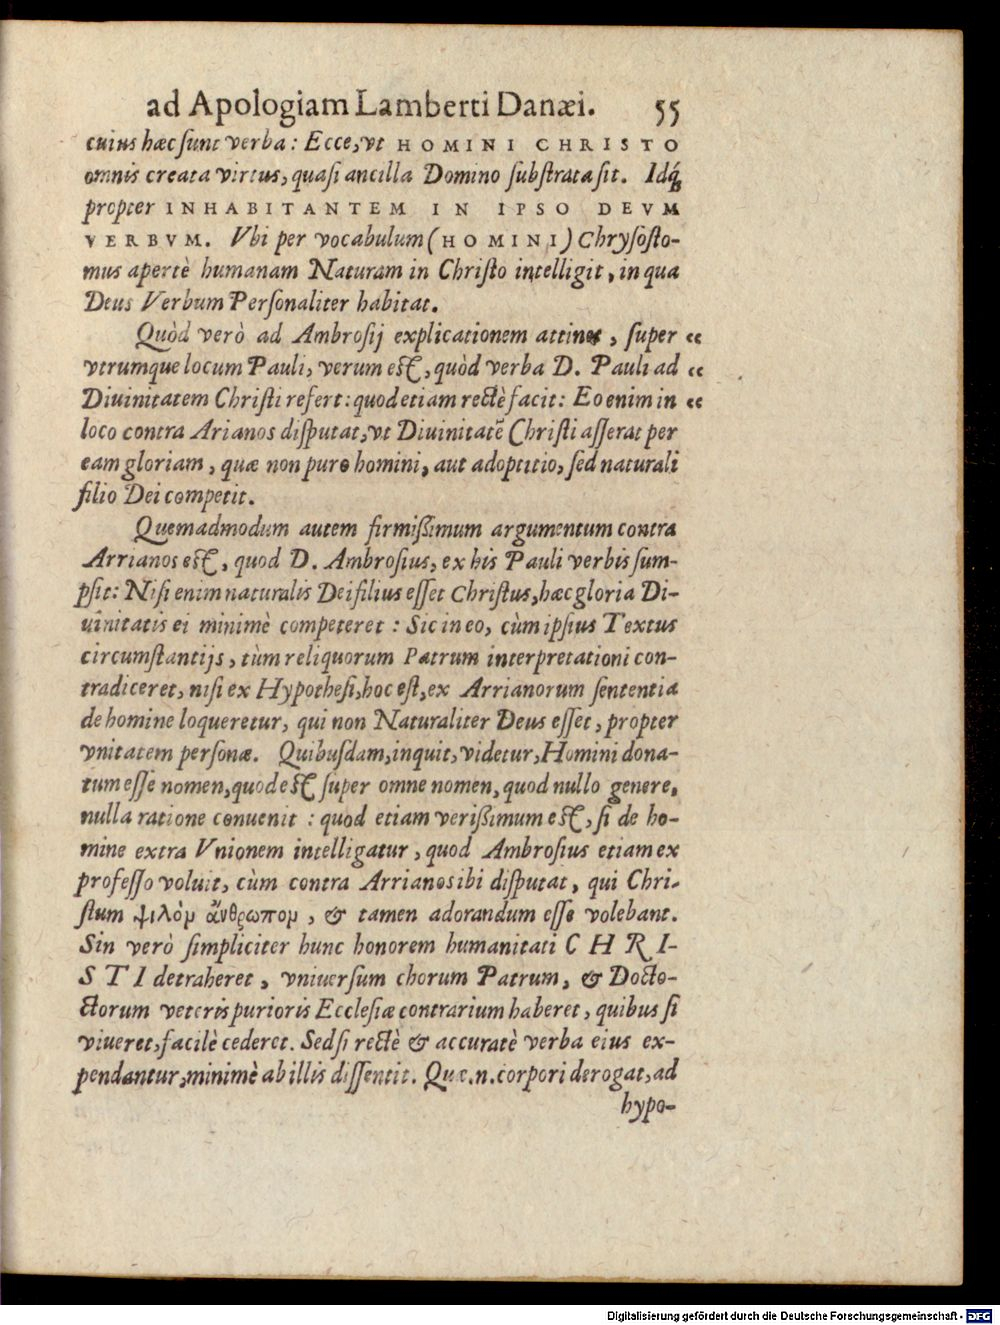 ad Apologiam Lamberti Danæi. 55
cuius hæc ſunt verba: Ecce, vt HOMINI CHRISTO
omnis creata virtus, quaſi ancilla Domino ſubſtrata ſit. Idq́
propter INHABITANTEM IN IPSO DEVM
VERBVM. Vbi per vocabulum (HOMINI) Chryſoſto-
mus apertè humanam Naturam in Chriſto intelligit, in qua
Deus Verbum Perſonaliter habitat.
Quòd verò ad Ambroſij explicationem attinet, ſuper “
vtrumque locum Pauli, verum eſt, quòd verba D. Pauli ad “
Diuinitatem Chriſti refert: quod etiam rectè facit: Eo enim in “
loco contra Arianos diſputat, vt Diuinitatẽ Chriſti aſſerat per
eam gloriam, quæ non puro homini, aut adoptitio, ſed naturali
filio Dei competit.
Quemadmodum autem firmiſſimum argumentum contra
Arrianos eſt, quod D. Ambroſius, ex his Pauli verbis ſum-
pſit: Niſi enim naturalis Dei filius eſſet Chriſtus, hæc gloria Di-
uinitatis ei minimè competeret: Sic in eo, cùm ipſius Textus
circumſtantijs, tùm reliquorum Patrum interpretationi con-
tradiceret, niſi ex Hypotheſi, hoc eſt, ex Arrianorum ſententia
de homine loqueretur, qui non Naturaliter Deus eſſet, propter
vnitatem perſonæ. Quibuſdam, inquit, videtur, Homini dona-
tum eſſe nomen, quod eſt ſuper omne nomen, quod nullo genere,
nulla ratione conuenit: quod etiam veriſſimum eſt, ſi de ho-
mine extra Vnionem intelligatur, quod Ambroſius etiam ex
profeſſo voluit, cùm contra Arrianos ibi diſputat, qui Chri-
ſtum ψιλὸμ ἄνθρωπομ, & tamen adorandum eſſe volebant.
Sin verò ſimpliciter hunc honorem humanitati CHRI-
STI detraheret, vniuerſum chorum Patrum, & Docto-
ctorum veteris purioris Eccleſiæ contrarium haberet, quibus ſi
viueret, facilè cederet. Sed ſi rectè & accuratè verba eius ex-
pendantur, minimè ab illis diſſentit. Quæ.n. corpori derogat, ad
hypo-
Digitalisierung gefördert durch die Deutsche Forschungsgemeinschaft - DFG